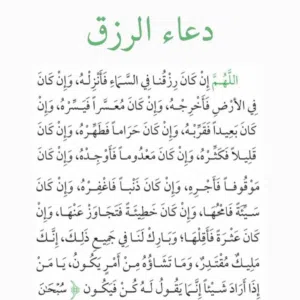 دعاء الرزق
اللَّهُمَّ إِنْ كَانَ رِزْقُنَا فِي السَّمَاءِ فَأَنْزِلْهُ، وَإِنْ كَانَ
فِي الأَرْضِ فَأَخْرِجْهُ، وَإِنْ كَانَ مُعَسَّراً فَيَسِّرْهُ، وَإِنْ
كَانَ بَعِيداً فَقَرِّبْهُ، وَإِنْ كَانَ حَرَاماً فَطَهِّرْهُ، وَإِنْ كَانَ
قَلِيلاً فَكَثِّرْهُ، وَإِنْ كَانَ مَعْدُوماً فَأَوْجِدْهُ، وَإِنْ كَانَ
مَوْقُوفاً فَأَجْرِهِ، وَإِنْ كَانَ ذَنْباً فَاغْفِرْهُ، وَإِنْ كَانَ
سَيِّئَةً فَامْحُهَا، وَإِنْ كَانَ خَطِيئَةً فَتَجَاوَزْ عَنْهَا، وَإِنْ
كَانَ عَثْرَةً فَأَقِلْهَا، وَبَارِكْ لَنَا فِي جَمِيعِ ذَلِكَ، إِنَّكَ
مَلِيكٌ مُقْتَدِرٌ، وَمَا تَشَاؤُهُ مِنْ أَمْرٍ يَكُونُ، يَا مَنْ
إِذَا أَرَادَ شَيْئاً إِنَّمَا يَقُولُ لَهُ كُنْ فَيَكُونُ ﴿ سُبْحَٰنَ